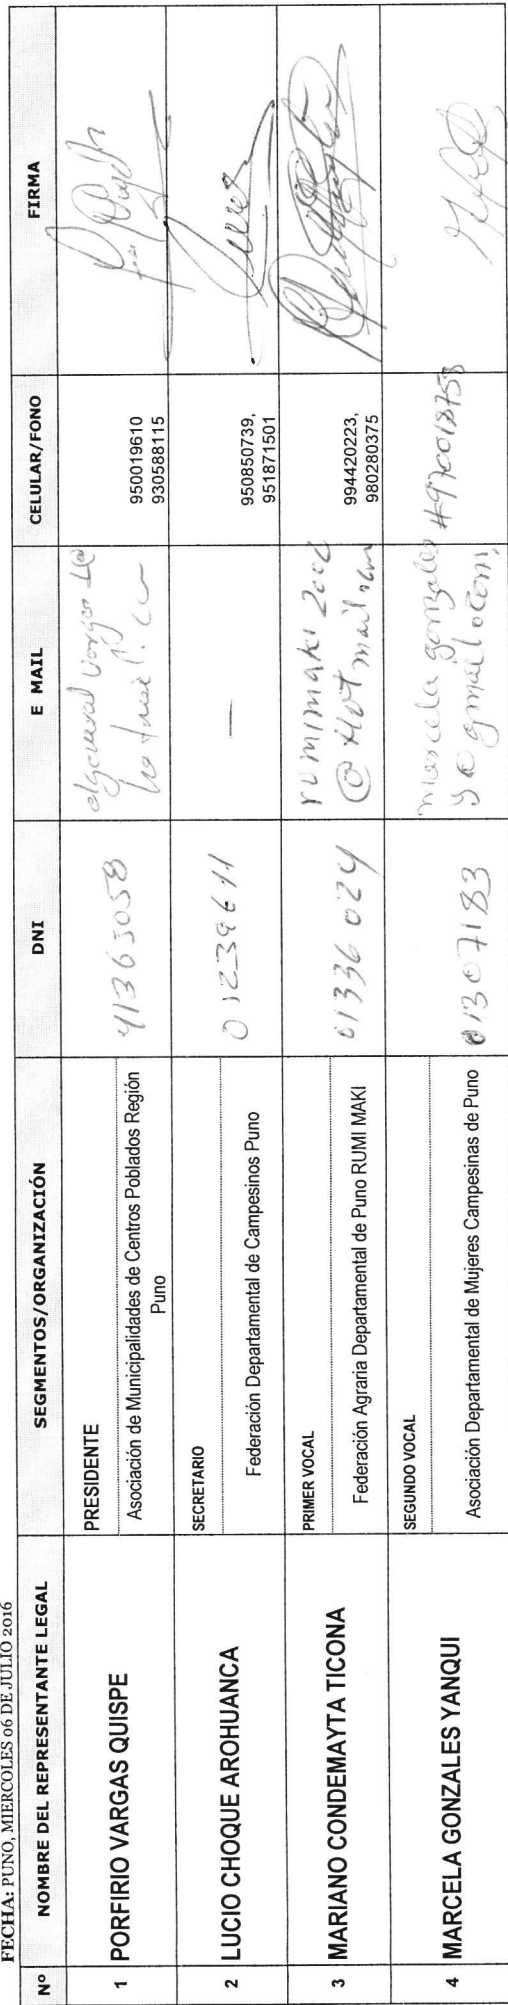 FECHA: PUNO, MIERCOLES 06 DE JULIO 2016
Nº NOMBRE DEL REPRESENTANTE LEGAL SEGMENTOS/ORGANIZACIÓN DNI E MAIL CELULAR/FONO FIRMA
1 PORFIRIO VARGAS QUISPE
PRESIDENTE
Asociación de Municipalidades de Centros Poblados Región
Puno
41365058
950019610
930588115
2 LUCIO CHOQUE AROHUANCA
SECRETARIO
Federación Departamental de Campesinos Puno
01239611
—
950850739,
951871501
3 MARIANO CONDEMAYTA TICONA
PRIMER VOCAL
Federación Agraria Departamental de Puno RUMI MAKI
01336024
rumimaki 2002
@ Hotmail.com
994420223,
980280375
4 MARCELA GONZALES YANQUI
SEGUNDO VOCAL
Asociación Departamental de Mujeres Campesinas de Puno
01307183
marcela gonzales
y @ gmail.com,
#970018758